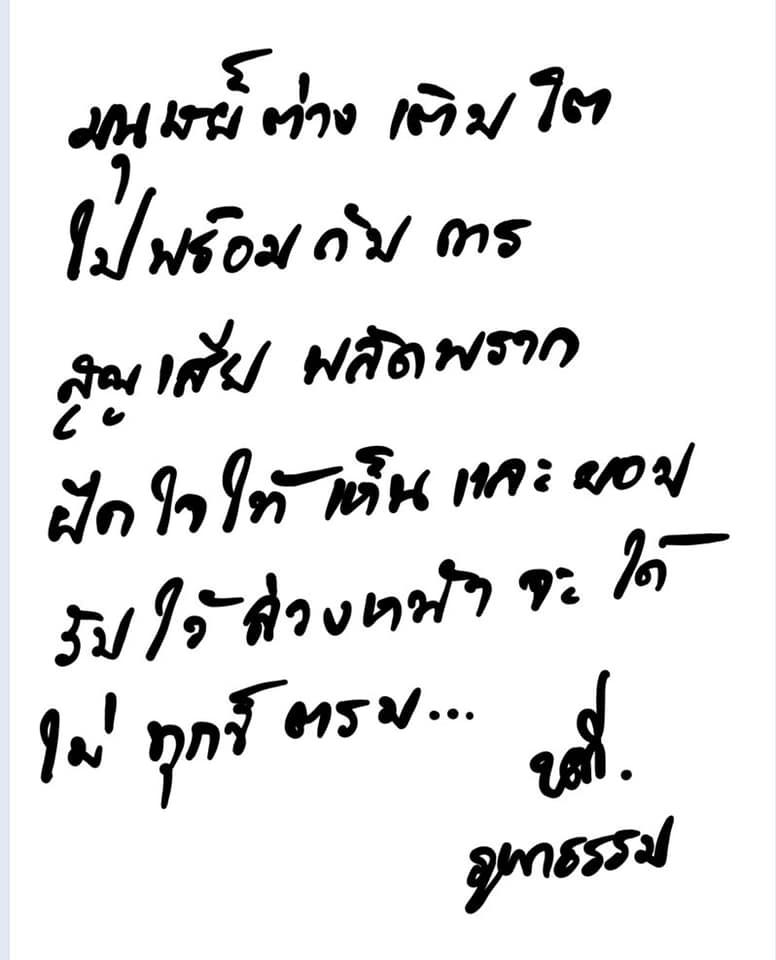 มนุษย์ต่าง เติบโต
ไปพร้อมกับ การ
สูญเสีย พลัดพราก
ฝึกใจให้เห็น และ ยอม
รับไว้ล่วงหน้า จะ ได้
ไม่ ทุกข์ ตรม...
จุฑาธรรม